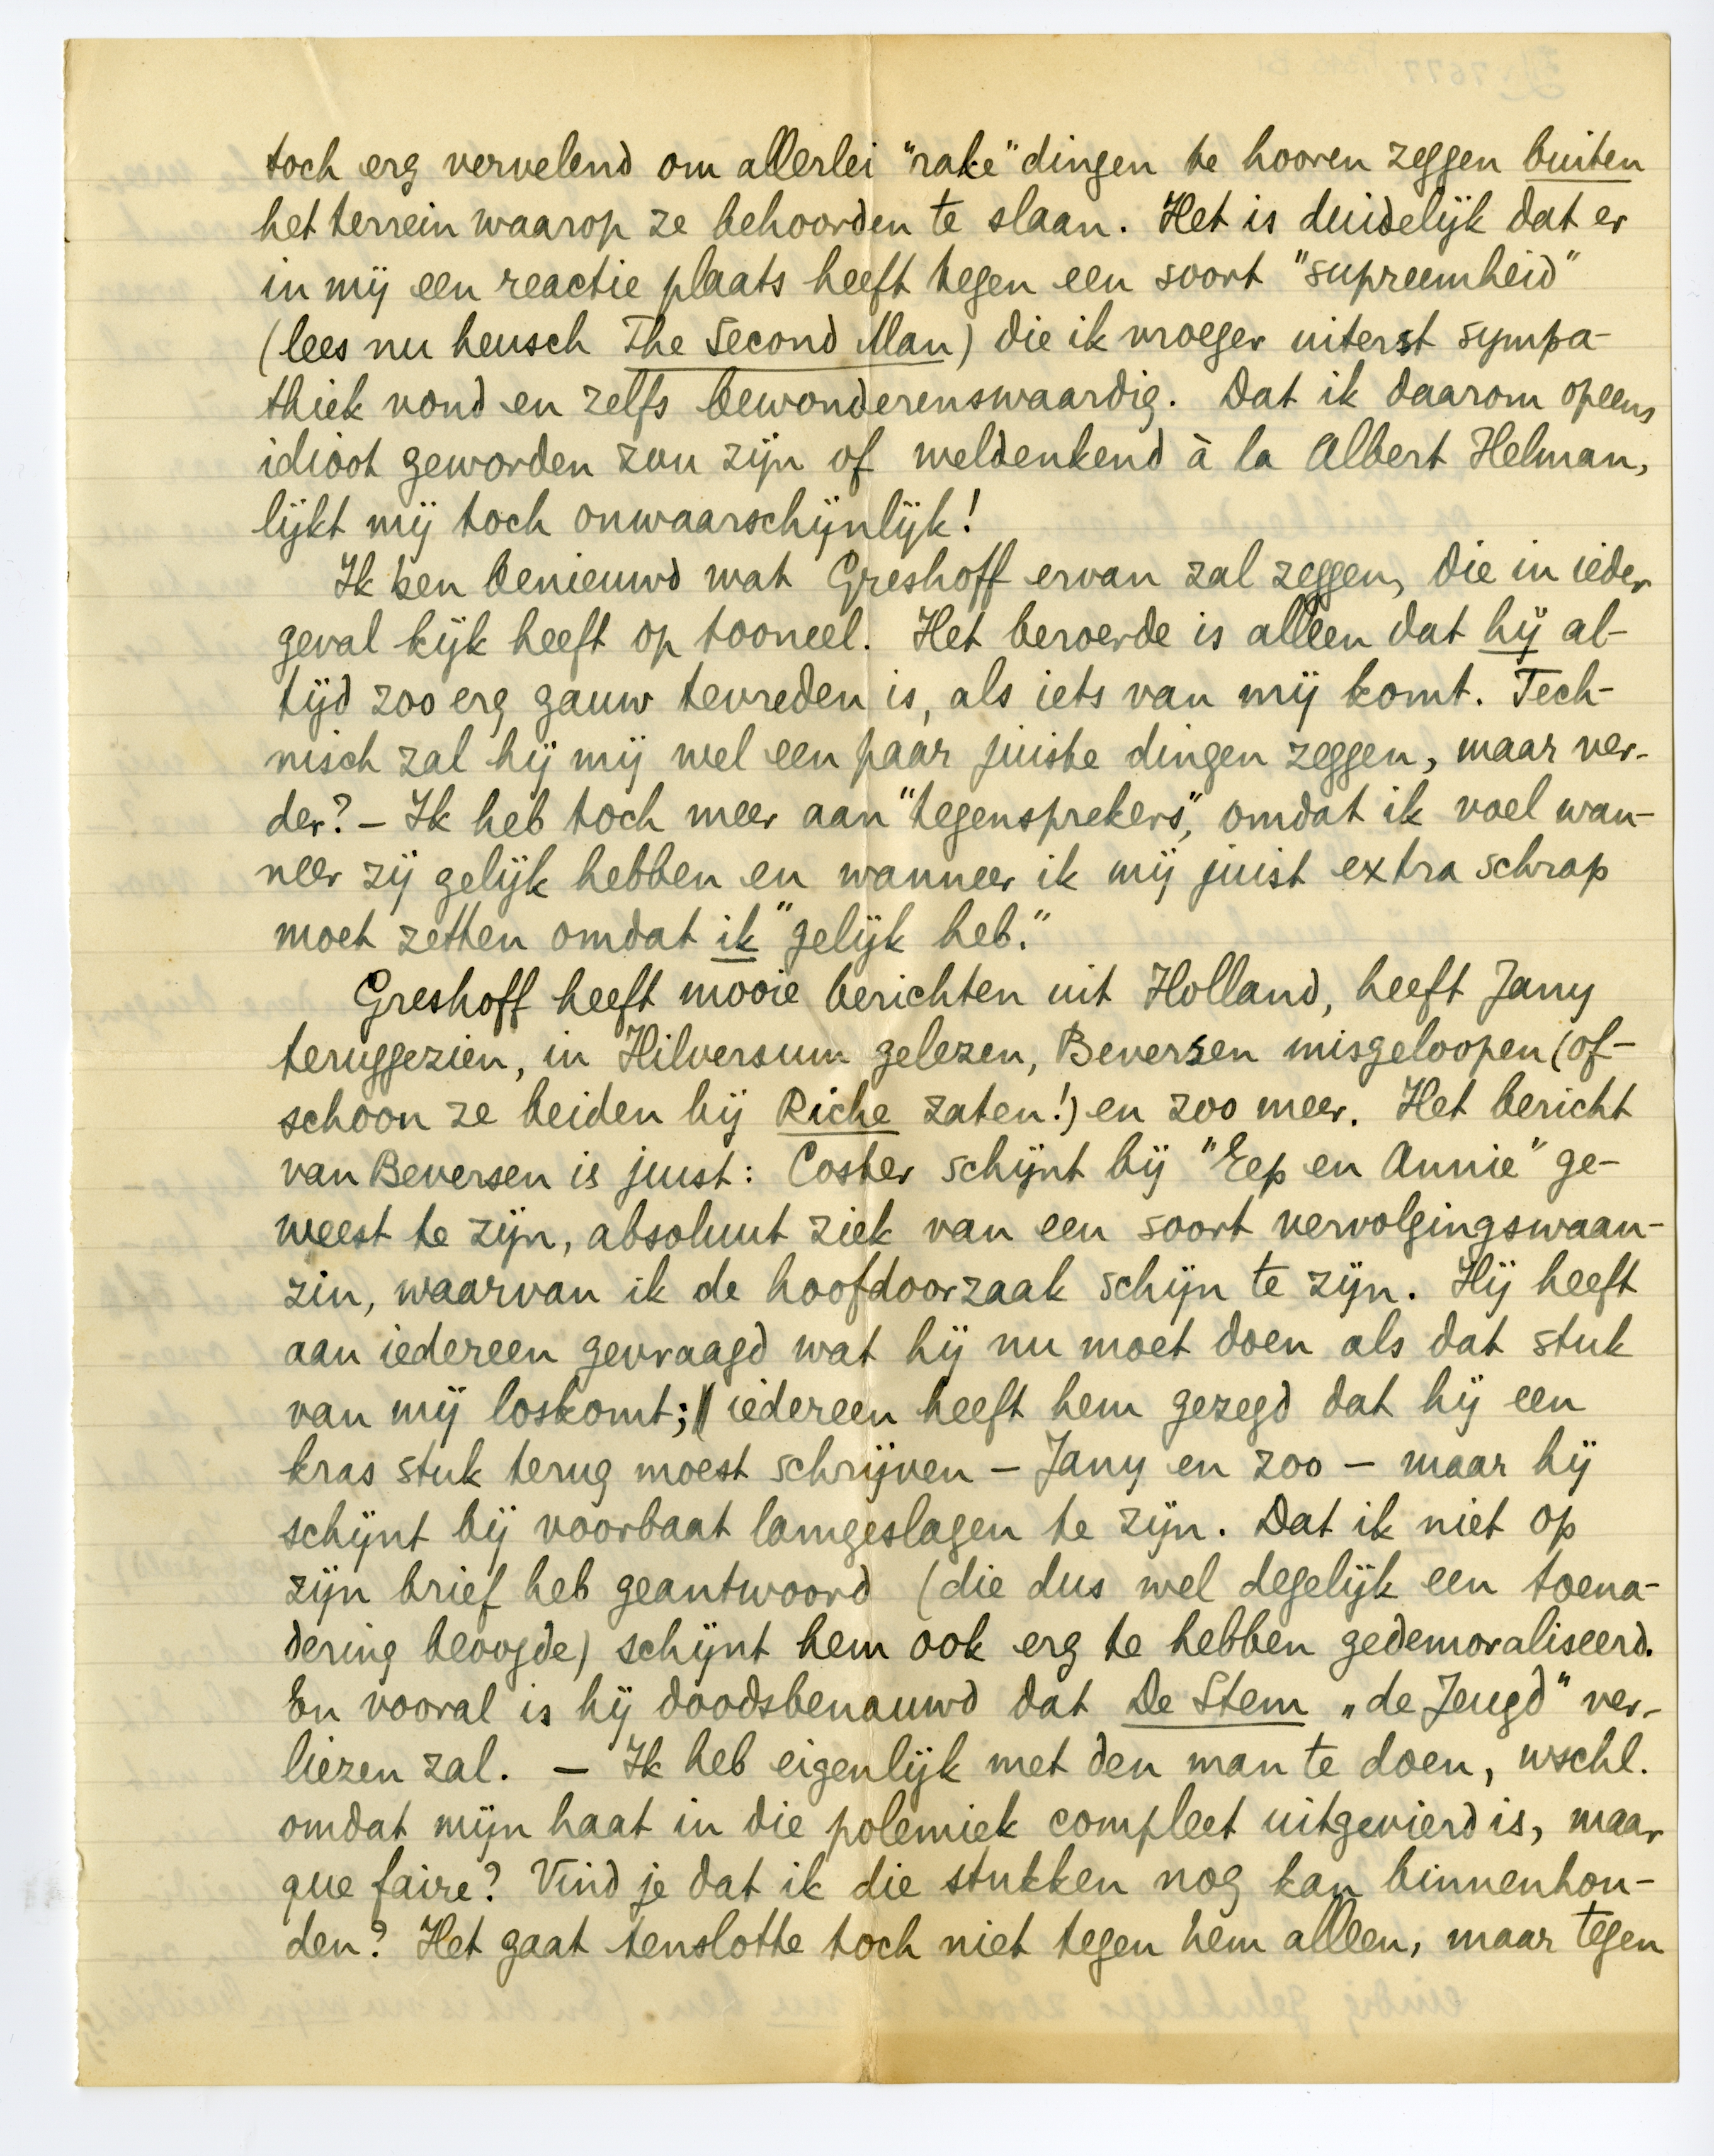 toch erg vervelend om allerlei "rake" dingen te hooren zeggen buiten
het terrein waarop ze behoorden te slaan. Het is duidelijk dat er
in mij een reactie plaats heeft tegen een soort "supreemheid"
(lees nu heusch The Second Man) die ik vroeger uiterst sympa-
thiek vond en zelfs bewonderenswaardig. Dat ik daarom opeens
idioot geworden zou zijn of weldenkend à la Albert Helman,
lijkt mij toch onwaarschijnlijk!
Ik ben benieuwd wat Greshoff ervan zal zeggen, die in ieder
geval kijk heeft op tooneel. Het beroerde is alleen dat hij al-
tijd zoo erg gauw tevreden is, als iets van mij komt. Tech-
nisch zal hij mij wel een paar juiste dingen zeggen, maar ver-
der? – Ik heb toch meer aan "tegensprekers", omdat ik voel wan-
neer zij gelijk hebben en wanneer ik mij juist extra schrap
moet zetten omdat ik "gelijk heb."
Greshoff heeft mooie berichten uit Holland, heeft Jany
teruggezien, in Hilversum gelezen, Beversen misgeloopen (of-
schoon ze beiden bij Riche zaten!) en zoo meer. Het bericht
van Beversen is juist: Coster schijnt bij "Eep en Annie" ge-
weest te zijn, absoluut ziek van een soort vervolgingswaan-
zin, waarvan ik de hoofdoorzaak schijn te zijn. Hij heeft
aan iedereen gevraagd wat hij nu moet doen als dat stuk
van mij loskomt; iedereen heeft hem gezegd dat hij een
kras stuk terug moest schrijven – Jany en zoo – maar hij
schijnt bij voorbaat lamgeslagen te zijn. Dat ik niet op
zijn brief heb geantwoord (die dus wel degelijk een toena-
dering beoogde) schijnt hem ook erg te hebben gedemoraliseerd.
En vooral is hij doodsbenauwd dat De Stem „de Jeugd" ver-
liezen zal. – Ik heb eigenlijk met den man te doen, wschl.
omdat mijn haat in die polemiek compleet uitgevierd is, maar
que faire? Vind je dat ik die stukken nog kan binnenhou-
den? Het gaat tenslotte toch niet tegen hem alleen, maar tegen